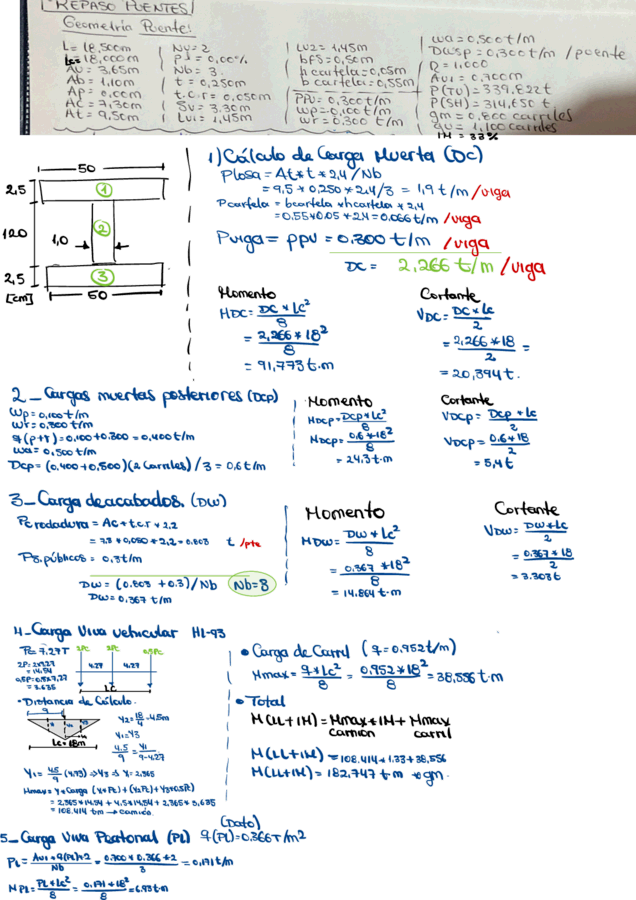 REPASO PUENTES
Geometria Puente:
L = 18,500m
Lc = 18,000m
Av = 3.65m
Ab = 1,10m
Ap = 0,00m
Ac = 7,30m
At = 9,50m
Nv = 2
PJ = 0,00%
Nb = 3
t = 0,250m
t.c.r = 0,050m
Sv = 3.30m
Lv1 = 1,45m
Lv2 = 1,45m
bfs = 0,50m
h cartela = 0,05m
b cartela = 0,55m
PPV = 0,300 t/m
wp = 0,100 t/m
wr = 0.300 t/m
wa = 0,500 t/m
Dwsp = 0,300 t/m /puente
R = 1.000
Av1 = 0,700m
P(TU) = 339.822t
P(SH) = 314,650 t
gm = 0,800 carriles
gv = 1,100 carriles
IM = 33%
50
2,5
120
1,0
2,5
[cm]
50
1
2
3
1) Cálculo de Carga Muerta (DC)
Plosa = At * t * 2,4 / Nb
= 9,5 * 0,250 * 2.4/3 = 1,9 t/m /viga
Pcartela = bcartela * hcartela * 2,4
= 0.55*0.05 * 2.4 = 0.066 t/m /viga
Pviga = ppv = 0.300 t/m /viga
DC = 2,266 t/m /viga
Momento
MDC = DC * Lc² / 8
= 2,266 * 18² / 8
= 91,773 t.m
Cortante
VDC = DC * Lc / 2
= 2,266 * 18 / 2 =
= 20,394 t.
2_ Cargas muertas posteriores (DCP)
Wp = 0,100 t/m
Wr = 0,300 t/m
q (p+r) = 0,100 + 0.300 = 0,400 t/m
wa = 0,500 t/m
Dcp = (0.400 + 0,500)(2 Carriles) / 3 = 0.6 t/m
Momento
MDCP = DCP * Lc² / 8
MDCP = 0.6 * 18² / 8
= 24,3 t.m
Cortante
VDCP = Dcp * Lc / 2
VDCP = 0.6 * 18 / 2
= 5,4 t
3_ Carga de acabados. (DW)
Pc rodadura = Ac * t.c.r * 2.2
= 7.3 * 0,050 * 2,2 = 0.803 t /pte
Ps.públicos = 0,3 t/m
DW = (0.803 + 0.3) / Nb Nb=3
DW = 0,367 t/m
Momento
MDW = DW * Lc² / 8
= 0.367 * 18² / 8
= 14.864 t.m
Cortante
VDW = DW * Lc / 2
= 0.367 * 18 / 2
= 3.303 t
4_ Carga Viva vehicular HL-93
P = 7.27 T
2P: 2x7.27
= 14.54
0.5P: 0.5x7.27
= 3.635
2Pc 2Pc 0.5Pc
4.27 4.27
Lc
• Distancia de Cálculo.
9
Lc = 18m
Y2 = 18/4 = 4.5m
Y1 = Y3
4.5/9 = Y1/9-4.27
Y1 = 4.5/9 (4.73) => Y3 => Y = 2,365
Mmax = Y * Carga (Y*Pc) + (Y2*Pc) + Y3*0.5Pc)
= 2.365*14.54 + 4.5*14,54 + 2.365 * 3,635
= 108.414 tm → camión.
• Carga de Carril (q = 0.952 t/m)
Mmax = q * Lc² / 8 = 0.952 * 18² / 8 = 38,556 t.m
• Total
M(LL+IM) = Mmax camión * IM + Mmax carril
M(LL+IM) = 108.414 * 1.33 + 38,556
M(LL+IM) = 182.747 t.m * gm.
5_ Carga Viva Peatonal (PL) q(PL) = 0.366 T/m² (Dato)
PL = Av1 * q(PL) * 2 / Nb = 0.700 * 0.366 * 2 / 3 = 0,171 t/m
MPL = PL * Lc² / 8 = 0.171 * 18² / 8 = 6.93 t.m